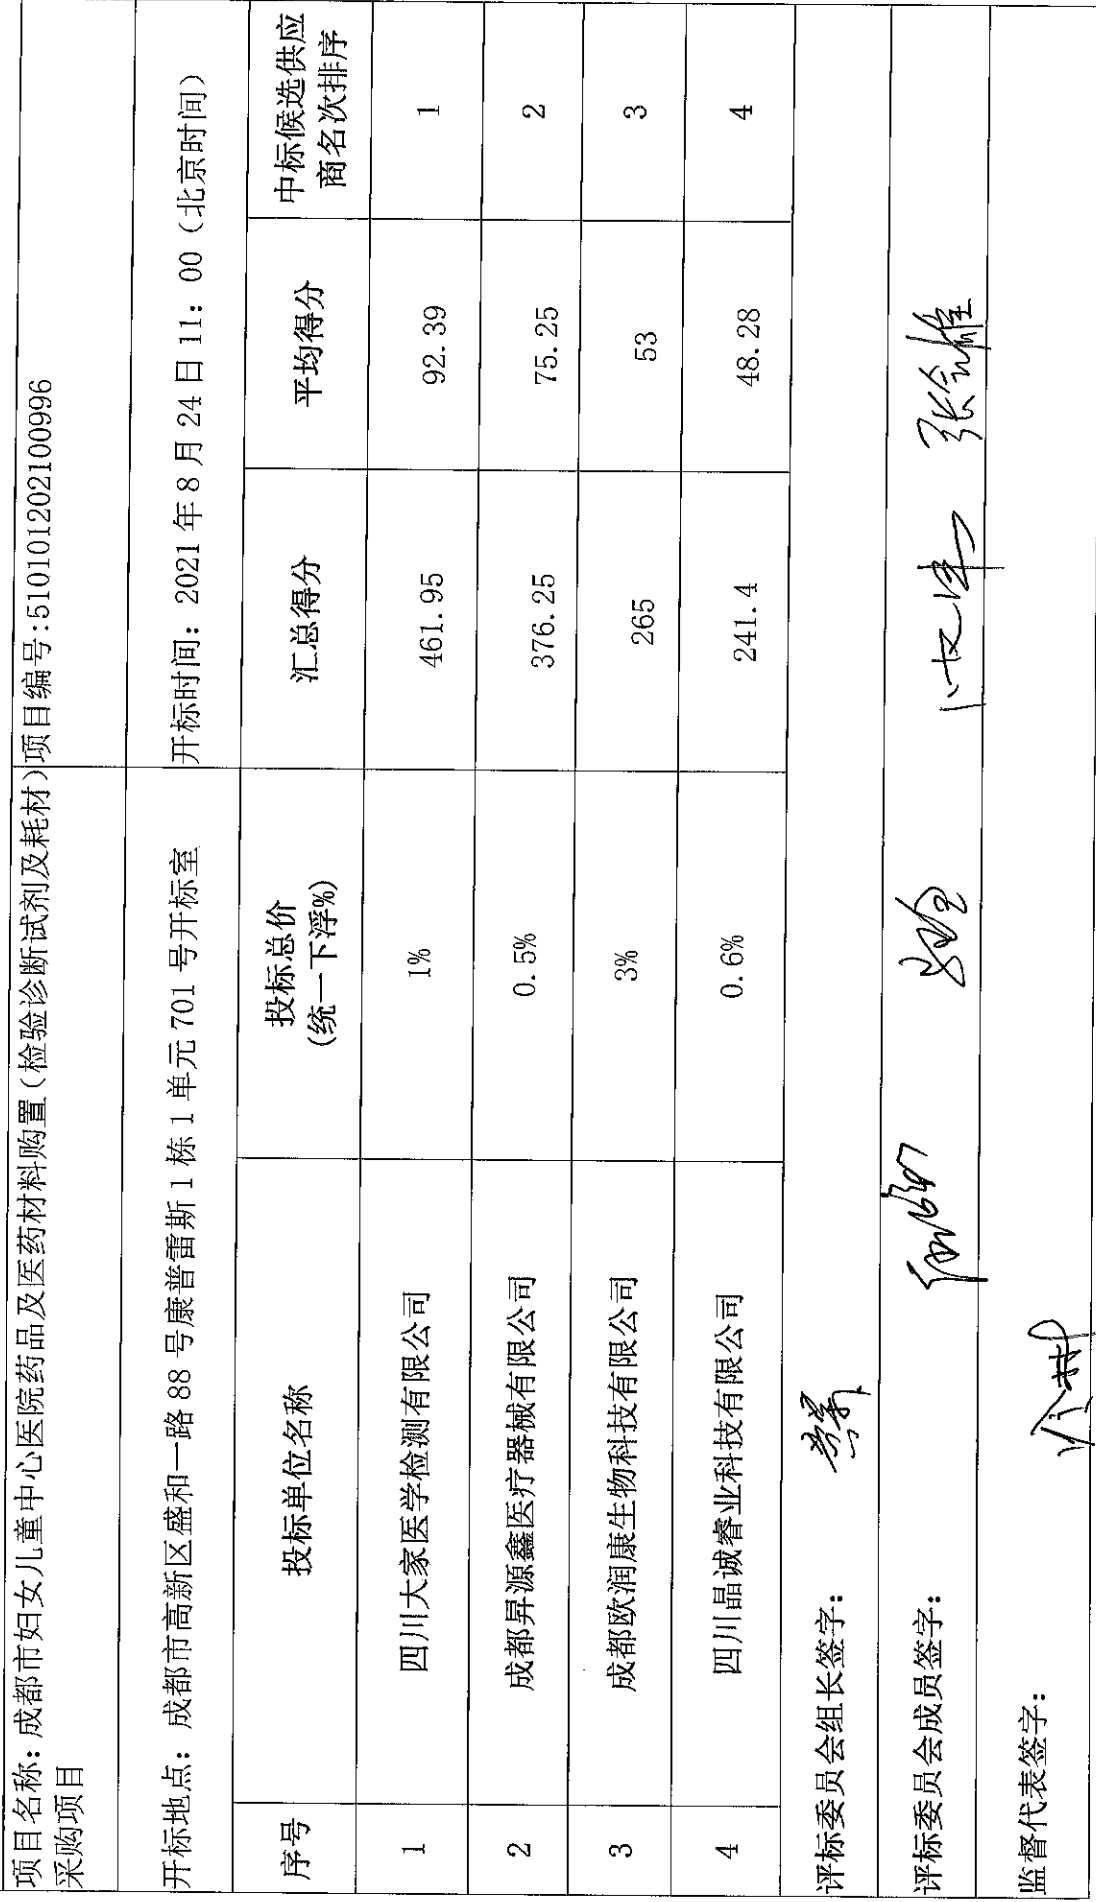 项目名称：成都市妇女儿童中心医院药品及医药材料购置（检验诊断试剂及耗材）
采购项目
项目编号:510101202100996
开标地点：成都市高新区盛和一路 88 号康普雷斯 1 栋 1 单元 701 号开标室
开标时间：2021 年 8 月 24 日 11：00（北京时间）
序号 投标单位名称 投标总价 (统一下浮%) 汇总得分 平均得分 中标候选供应商名次排序
1 四川大家医学检测有限公司 1% 461.95 92.39 1
2 成都昇源鑫医疗器械有限公司 0.5% 376.25 75.25 2
3 成都欧润康生物科技有限公司 3% 265 53 3
4 四川晶诚睿业科技有限公司 0.6% 241.4 48.28 4
评标委员会组长签字：
评标委员会成员签字：
监督代表签字：